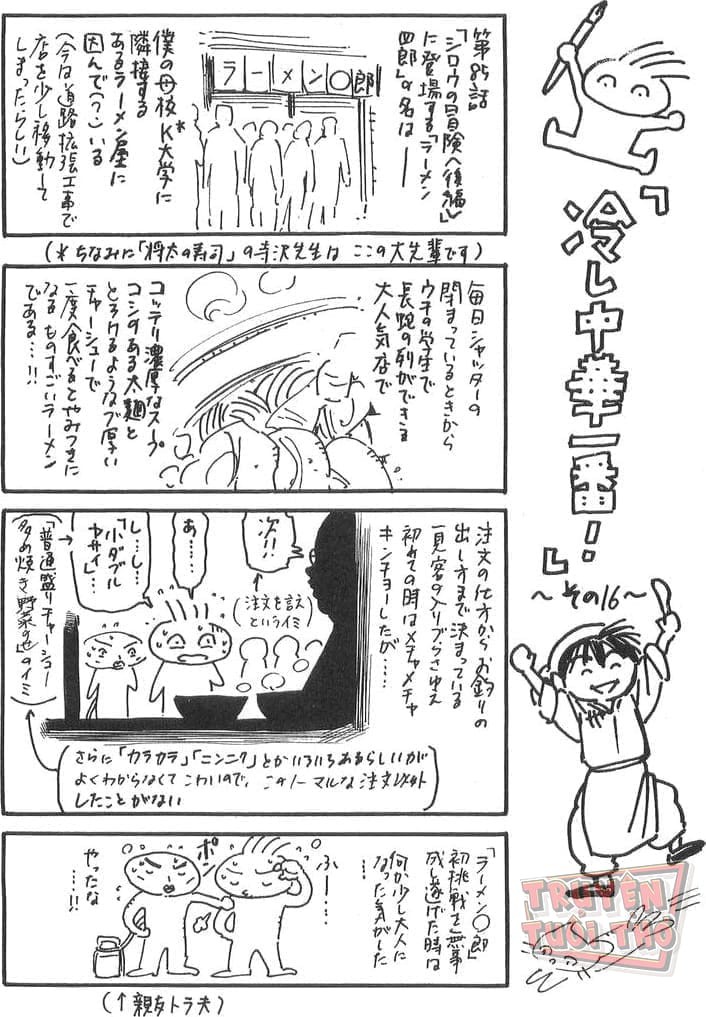 「冷し中華一番!」
〜その16〜
第85話
「シロウの冒険〈後編〉」
に登場する「ラーメン
四郎」の名は──
ラーメン〇郎
僕の母校K大学に*
隣接する
あるラーメン屋に
因んで(?)いる
(今は道路拡張工事で
店を少し移動して
しまったらしい)
(*ちなみに「将太の寿司」の寺沢先生は ここの大先輩です)
毎日シャッターの
閉まっているときから
ウチの学生で
長蛇の列ができる
大人気店で
コッテリ濃厚なスープ
コシのある太麺と
とろけるようなブ厚い
チャーシューで
一度食べるとやみつきに
なるものすごいラーメン
である…!!
注文の仕方からお釣りの
出し方まで決まっている
一見客の入りづらさゆえ
初めての時はメチャメチャ
キンチョーしたが……
次!!
(注文を言え)
というイミ
あ……
し…し…
「小ダブル
ヤサイ」…
(「普通盛りチャーシュー
多め焼き野菜のせ」のイミ)
(さらに「カラカラ」「ニンニク」とかいろいろあるらしいが
よくわからなくてこわいので、このノーマルな注文以外
したことがない)
「ラーメン〇郎」
初挑戦を無事
成し遂げた時は
何か少し大人に
なった気がした
ふー……
ポン
やったな
……!!
(↑親友トラ夫)
TRUYỆN
TUỔI THƠ